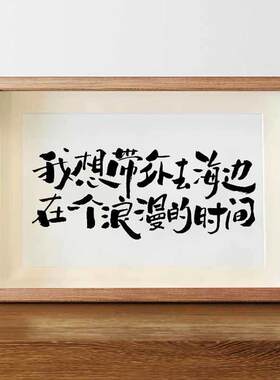 我想带你去海边
在个浪漫的时间